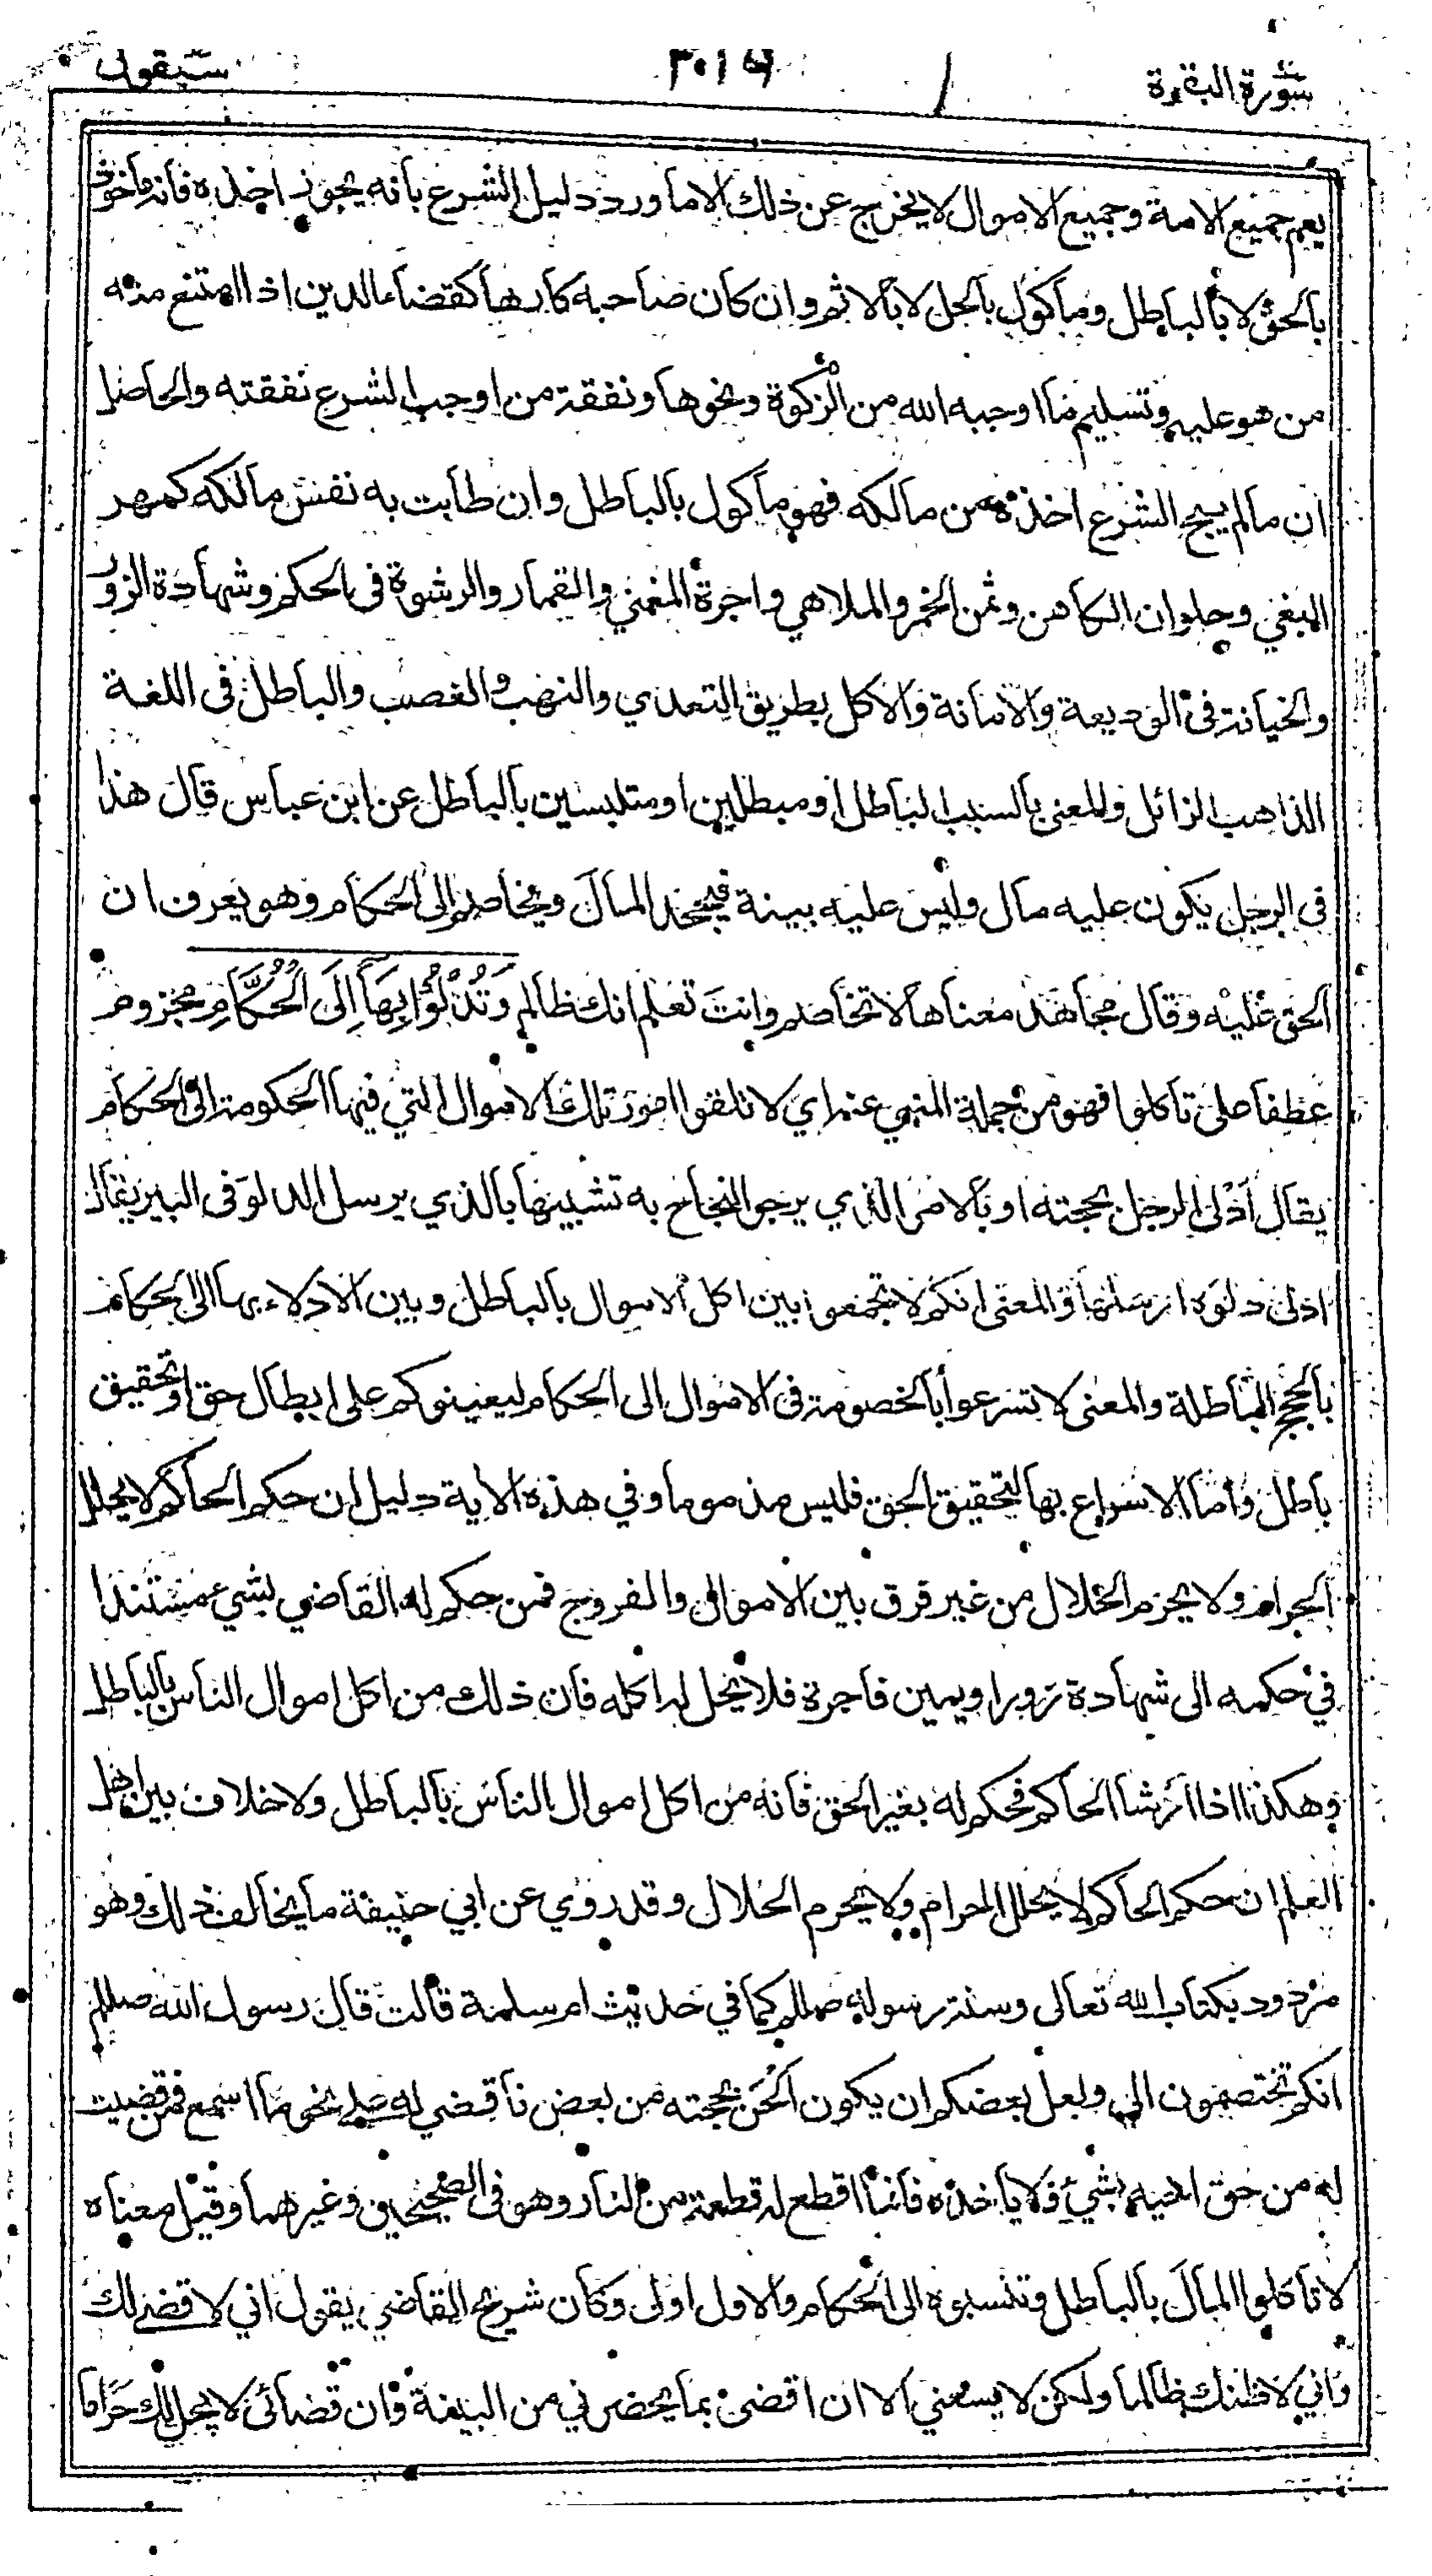 سورة البقرة ٣٠١ سيقول
يعم جميع الامة وجميع الاموال لا يخرج عن ذلك الا ما ورد دليل الشرع بأنه يجوز اخذه فانه مأخوذ
بالحق لا بالباطل ومأكول بالحل لا بالاثم وان كان صاحبه كارها كقضاء الدين اذا امتنع منه
من هو عليه وتسليم ما اوجبه الله من الزكوة ونحوها ونفقة من اوجب الشرع نفقته والحاصل
ان ما لم يبح الشرع اخذه من مالكه فهو مأكول بالباطل وان طابت به نفس مالكه كمهر
البغي وحلوان الكاهن وثمن الخمر والملاهي واجرة المغني والقمار والرشوة في الحكم وشهادة الزور
والخيانة في الوديعة والامانة والاكل بطريق التعدي والنهب والغصب والباطل في اللغة
الذاهب الزائل والمعنى بالسبب الباطل او مبطلين او متلبسين بالباطل عن ابن عباس قال هذا
في الرجل يكون عليه مال وليس عليه بينة فيجحد المال ويخاصم الى الحكام وهو يعرف ان
الحق عليه وقال مجاهد معناها لا تخاصم وانت تعلم انك ظالم وَتُدْلُوْا بِهَا إِلَى الْحُكَّامِ مجزوم
عطفا على تأكلوا فهو من جملة المنهي عنه اي لا تلقوا امور تلك الاموال التي فيها الحكومة الى الحكام
يقال أدلى الرجل بحجته او بالامر الذي يرجو النجاح به تشبيها بالذي يرسل الدلو في البير يقال
ادلى دلوه ارسلها والمعنى انكم لا تجمعوا بين اكل الاموال بالباطل وبين الادلاء بها الى الحكام
بالحجج الباطلة والمعنى لا تسرعوا بالخصومة في الاموال الى الحكام ليعينوكم على ابطال حق او تحقيق
باطل وأما الاسراع بها لتحقيق الحق فليس مذموما وفي هذه الاية دليل ان حكم الحاكم لا يحلل
الحرام ولا يحرم الحلال من غير فرق بين الاموال والفروج فمن حكم له القاضي بشيء مستندا
في حكمه الى شهادة زور او يمين فاجرة فلا يحل له اكله فان ذلك من اكل اموال الناس بالباطل
وهكذا اذا ارشا الحاكم فحكم له بغير الحق فانه من اكل اموال الناس بالباطل ولا خلاف بين اهل
العلم ان حكم الحاكم لا يحلل الحرام ولا يحرم الحلال وقد روي عن ابي حنيفة ما يخالف ذلك وهو
مردود بكتاب الله تعالى وسنة رسوله صللم كما في حديث ام سلمة قالت قال رسول الله صللم
انكم تختصمون الي ولعل بعضكم ان يكون الحن بحجته من بعض فاقضي له على نحو ما اسمع فمن قضيت
له من حق اخيه بشيء فلا يأخذه فانما اقطع له قطعة من النار وهو في الصحيحين وغيرهما وقيل معناه
لا تأكلوا المال بالباطل وتنسبوه الى الحكام والاول اولى وكان شريح القاضي يقول اني لاقضي لك
واني لاظنك ظالما ولكن لا يسعني الا ان اقضي بما يحضرني من البينة وان قضائي لا يحل لك حراما